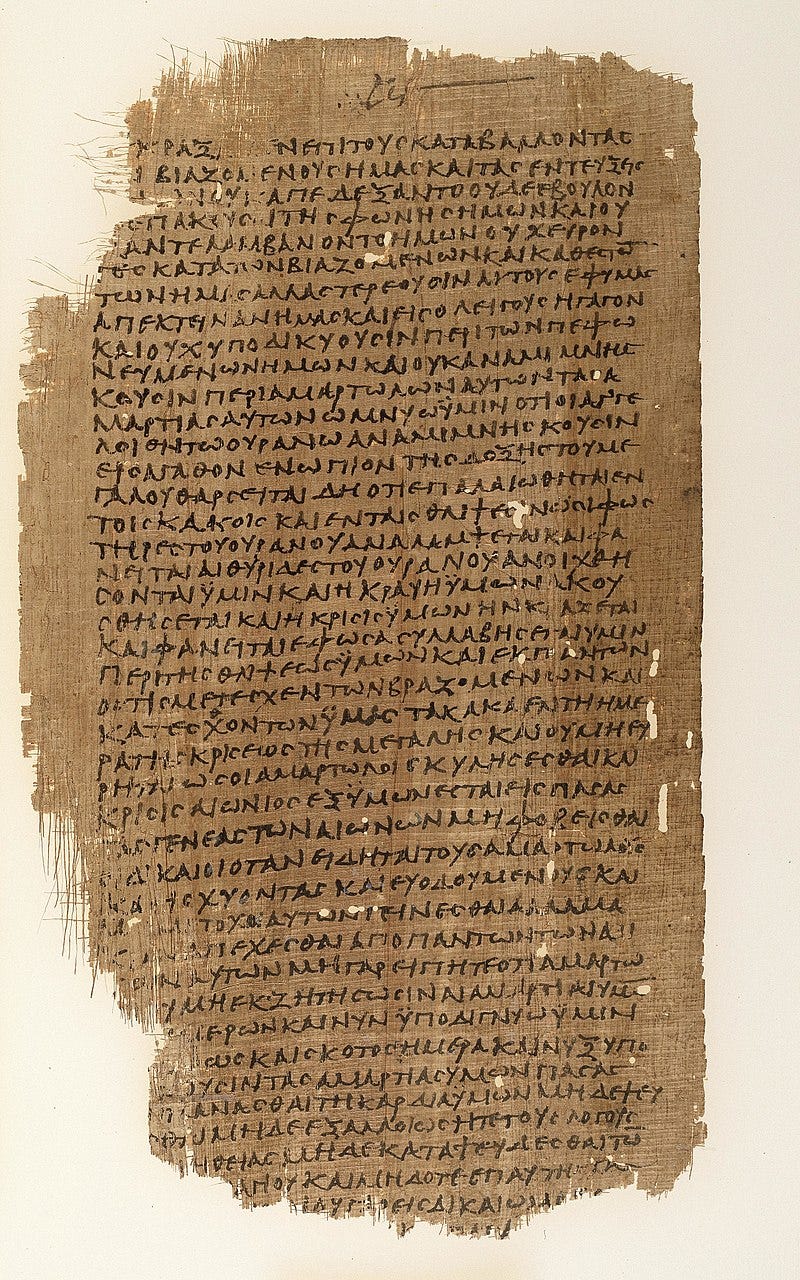 ΚΡΑΖ ΝΕΠΙΤΟΥϹΚΑΤΑΒΑΛΛΟΝΤΑϹ
ΒΙΑΖΟΜΕΝΟΥϹΗΜΑϹΚΑΙΤΑϹΕΝΤΕΥΞΕΙϹ
ΑΠΕΔΕΞΑΝΤΟΟΥΔΕΕΒΟΥΛΟΝ
ΕΠΑΚΟΥϹ ΙΤΗϹΦΩΝΗϹΗΜΩΝΚΑΙΟΥ
ΑΝΤΕΛΑΜΒΑΝΟΝΤΟΗΜΩΝΟΥΧΕΥΡΟΝ
ΤΕϹΚΑΤΑΤΩΝΒΙΑΖΟΜΕΝΩΝΚΑΙΚΑΘΕϹΤΟ̅
ΤΩΝΗΜΑϹΑΛΛΑϹΤΕΡΕΟΥϹΙΝΑΥΤΟΥϹΕΦΥΜΑϹ
ΑΠΕΚΤΕΙΝΑΝΗΜΑϹΚΑΙΕΙϹΟΛΕΙΓΟΥϹΗΓΑΓΟΝ
ΚΑΙΟΥΧΥΠΟΔΙΚΥΟΥϹΙΝΠΕΡΙΤΩΝΠΕΦΩ
ΝΕΥΜΕΝΩΝΗΜΩΝΚΑΙΟΥΚΑΝΑΜΙΜΝΗϹ
ΚΟΥϹΙΝΠΕΡΙΑΜΑΡΤΩΛΩΝΑΥΤΩΝΤΑϹΑ
ΜΑΡΤΙΑϹΑΥΤΩΝΩΜΝΥΩΫΜΙΝΟΤΙΟΙΑΓΓΕ
ΛΟΙΕΝΤΩΟΥΡΑΝΩΑΝΑΜΙΜΝΗϹΚΟΥϹΙΝ
ΕΙϹΑΓΑΘΟΝΕΝΩΠΙΟΝΤΗϹΔΟΞΗϹΤΟΥΜΕ
ΓΑΛΟΥΘΑΡϹΕΙΤΑΙΔΗΟΤΙΕΠΑΛΑΙΩΘΗΤΑΙΕΝ
ΤΟΙϹΚΑΚΟΙϹΚΑΙΕΝΤΑΙϹΘΛΙΨΕϹΙΝΩϹΙΦΩϹ
ΤΗΡΕϹΤΟΥΟΥΡΑΝΟΥΑΝΑΛΑΜΨΕΤΑΙΚΑΙΦΑ
ΝΕΙΤΑΙΑΙΘΥΡΙΔΕϹΤΟΥΟΥΡΑΝΟΥΑΝΟΙΧΘΗ
ϹΟΝΤΑΙΫΜΙΝΚΑΙΗΚΡΑΥΗΫΜΩΝΑΚΟΥ
ϹΘΗϹΕΤΑΙΚΑΙΗΚΡΙϹΙϹΫΜΩΝΗΝΚ ΑΖΕΤΑΙ
ΚΑΙΦΑΝΕΙΤΑΙΕΦΩϹΑϹΥΛΛΑΒΗϹΕΤΑΙΥΜΙΝ
ΠΕΡΙΤΗϹΘΛΙΨΕΩϹΫΜΩΝΚΑΙΕΚΠΑΝΤΩΝ
ΟϹΤΙϹΜΕΤΕϹΧΕΝΤΩΝΒΙΑΖΟΜΕΝΩΝΚΑΙ
ΚΑΤΕϹΧΟΝΤΩΝΫΜΑϹΤΑΚΑΚΑΕΝΤΗΗΜΕ
ΡΑΤΗϹΚΡΙϹΕΩϹΤΗϹΜΕΓΑΛΗϹΚΑΙΟΥΜΗΕΥ
ΡΗΤΑΙΩϹΟΙΑΜΑΡΤΩΛΟΙϹΚΥΛΗϹΕϹΘΑΙΚΑΙ
ΚΡΙϹΙϹΑΙΩΝΙΟϹΕΞΫΜΩΝΕϹΤΑΙΕΙϹΠΑϹΑϹ
ΤΑϹΓΕΝΕΑϹΤΩΝΑΙΩΝΩΝΜΗΦΟΒΕΙϹΘΑΙ
ΟΙΔΙΚΑΙΟΙΟΤΑΝΕΙΔΗΤΑΙΤΟΥϹΑΜΑΡΤΩΛΟΥϹ
ΚΑ ΙϹΧΥΟΝΤΑϹΚΑΙΕΥΟΔΟΥΜΕΝΟΥϹΚΑΙ
ΜΕΤΟΧΟΙΑΥΤΩΝΓΕΙΝΕϹΘΑΙΑΛΛΑΜΑ
ΑΠΕΧΕϹΘΑΙΑΠΟΠΑΝΤΩΝΤΩΝΑΔΙ
ΑΥΤΩΝΜΗΓΑΡΕΙΠΗΤΕΟΤΙΑΜΑΡΤΩ
ΥΜΗΕΚΖΗΤΗϹΩϹΙΝΑΙΑΜΑΡΤΙΑΙΥΜΩ
ΜΕΡΩΝΚΑΙΝΥΝΫΠΟΔΙΓΝΥΩΫΜΙΝ
ΩϹΚΑΙϹΚΟΤΟϹΗΜΕΡΑΚΑΙΝΥΞΥΠΟ
ΟΥϹΙΝΤΑϹΑΜΑΡΤΙΑϹΥΜΩΝΠΑϹΑϹ
ΠΛΑΝΑϹΘΑΙΤΗΚΑΡΔΙΑΥΜΩΝΜΗΔΕΨΕΥ
ΜΗΔΕΕΞΑΛΛΟΙΩϹΗΤΕΤΟΥϹΛΟΓΟΥϹ
ΗΘΕΙΑϹΜΗΔΕΚΑΤΑΨΕΥΔΕϹΘΑΙΤΩ̅
ΓΙΟΥΚΑΙΜΗΔΟΤΕΕΠΑΥΤΗ
ΓΑΡΕΙϹΔΙΚΑΙΩΜΑ